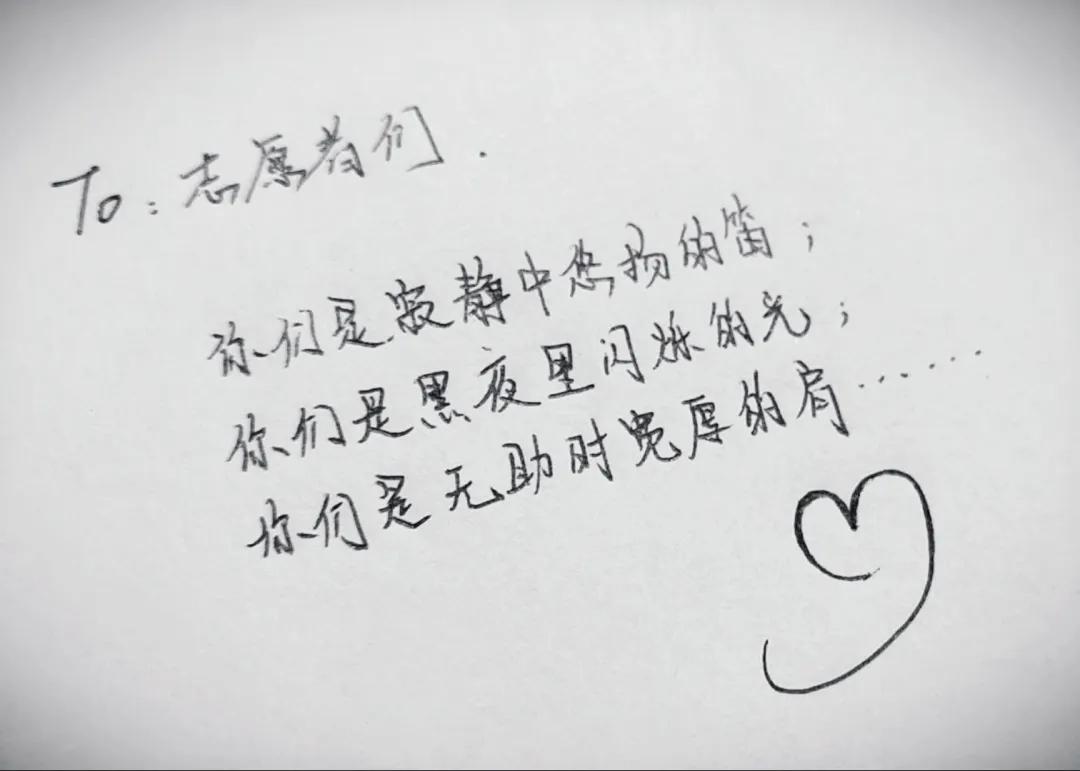 To:志愿者们.
你们是寂静中悠扬的笛;
你们是黑夜里闪烁的光;
你们是无助时宽厚的肩……